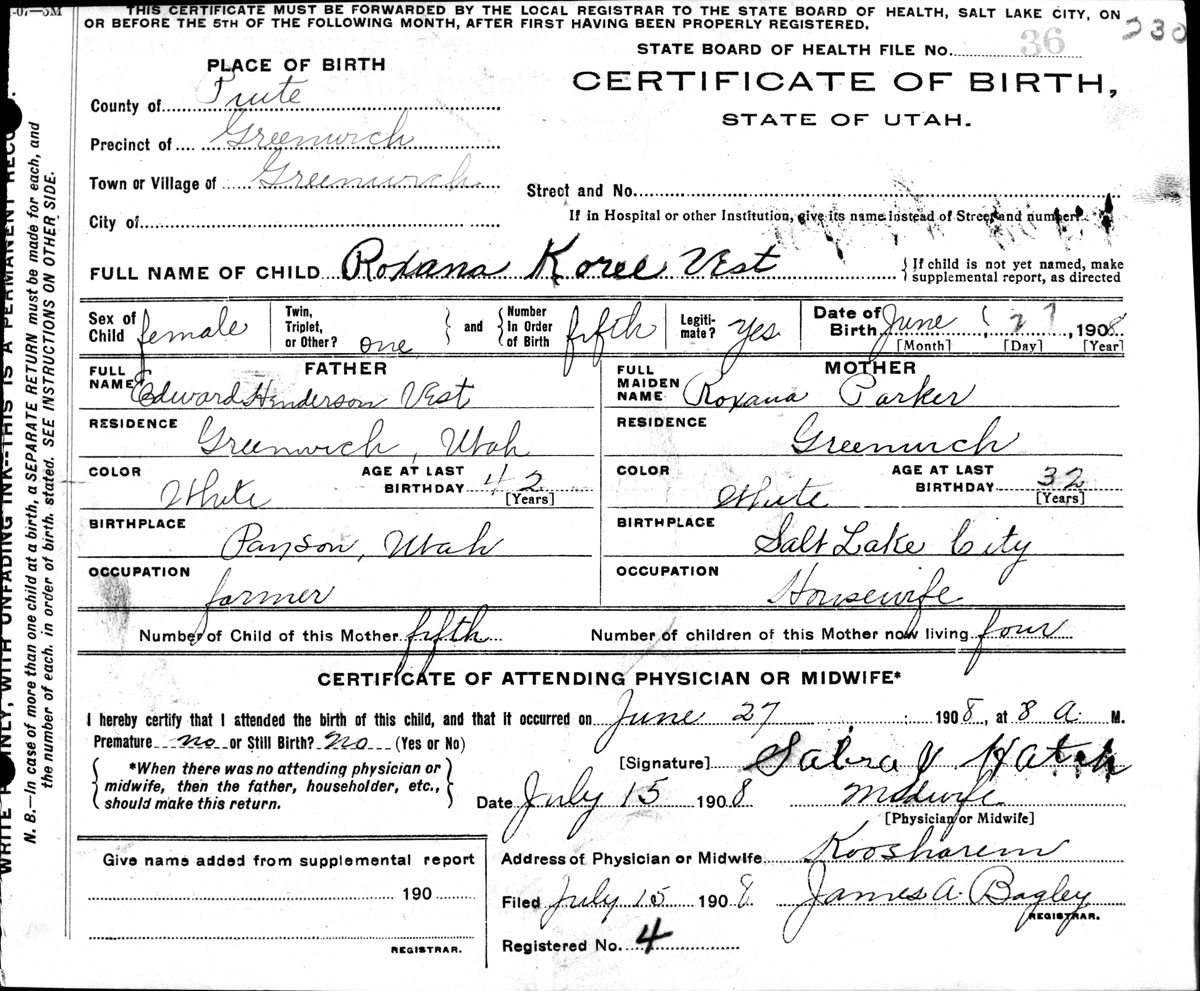 -07—5M
THIS CERTIFICATE MUST BE FORWARDED BY THE LOCAL REGISTRAR TO THE STATE BOARD OF HEALTH, SALT LAKE CITY, ON
OR BEFORE THE 5TH OF THE FOLLOWING MONTH, AFTER FIRST HAVING BEEN PROPERLY REGISTERED.
230
STATE BOARD OF HEALTH FILE No. 36
CERTIFICATE OF BIRTH,
STATE OF UTAH.
PLACE OF BIRTH
County of Piute
Precinct of Greenwich
Town or Village of Greenwich
City of
Street and No.
If in Hospital or other Institution, give its name instead of Street and number.
FULL NAME OF CHILD Roxana Koree Vest
{If child is not yet named, make
supplemental report, as directed
Sex of Child female
Twin, Triplet, or Other? one } and { Number In Order of Birth fifth
Legiti-mate? Yes
Date of Birth June 27, 1908
[Month] [Day] [Year]
FATHER
FULL NAME Edward Henderson Vest
RESIDENCE Greenwich, Utah
COLOR White AGE AT LAST BIRTHDAY 42 [Years]
BIRTHPLACE Payson, Utah
OCCUPATION farmer
MOTHER
FULL MAIDEN NAME Roxana Parker
RESIDENCE Greenwich
COLOR White AGE AT LAST BIRTHDAY 32 [Years]
BIRTHPLACE Salt Lake City
OCCUPATION Housewife
Number of Child of this Mother fifth Number of children of this Mother now living four
CERTIFICATE OF ATTENDING PHYSICIAN OR MIDWIFE*
I hereby certify that I attended the birth of this child, and that it occurred on June 27 1908, at 8 a. M.
Premature no or Still Birth? No (Yes or No)
{ *When there was no attending physician or
midwife, then the father, householder, etc.,
should make this return. }
[Signature] Sabra J Hatch
Date July 15 1908 Midwife
[Physician or Midwife]
Give name added from supplemental report
190
REGISTRAR.
Address of Physician or Midwife Koosharem
Filed July 15 1908 James A. Bagley
REGISTRAR.
Registered No. 4
WRITE PLAINLY, WITH UNFADING INK--THIS IS A PERMANENT RECO
N. B.—In case of more than one child at a birth, a SEPARATE RETURN must be made for each, and
the number of each. in order of birth. stated. SEE INSTRUCTIONS ON OTHER SIDE.